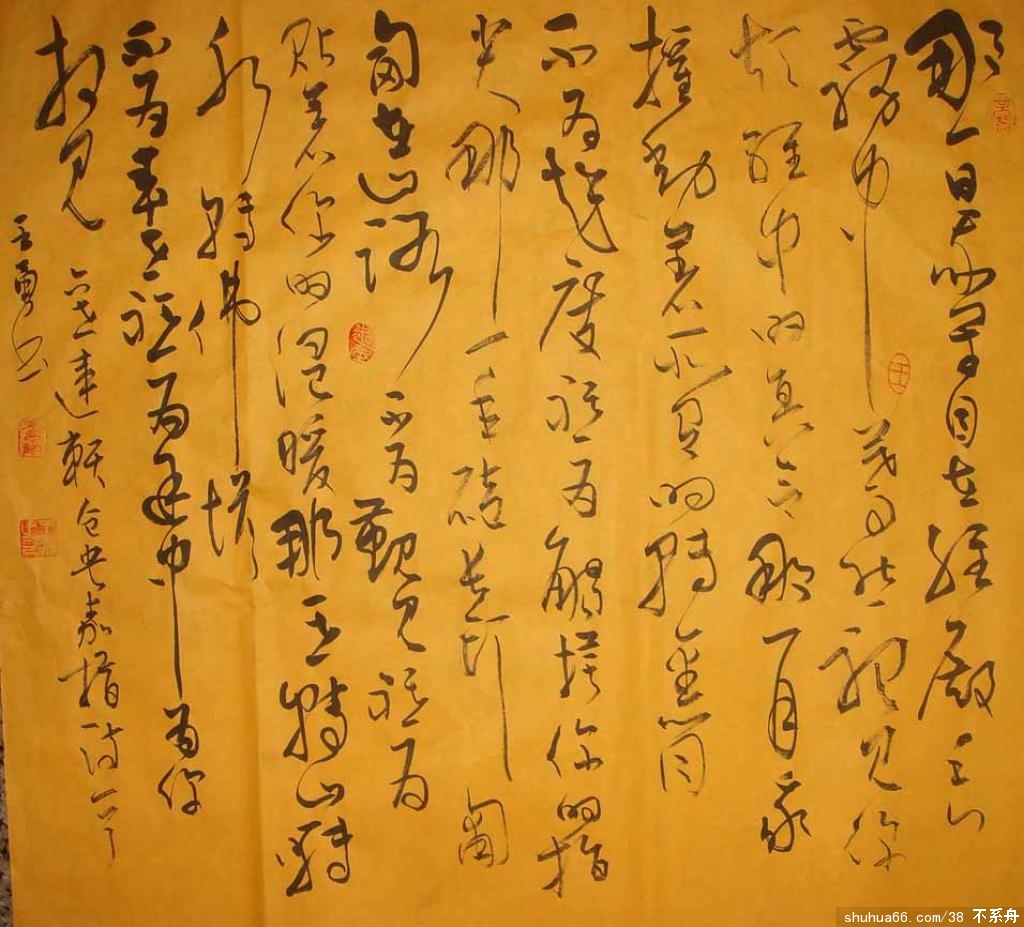 那一日我闭目在经殿香
雾中蓦然听见你
颂经中的真言那一月我
摇动着所有的转经筒
不为超度只为触摸你的指
尖那一年磕长头匍
匐在山路不为觐见只为
贴着你的温暖那一世转山转
水转佛塔
不为来世只为途中与你
相见
六世达赖仓央嘉措诗一首
王勇书
shuhua66.com/38 不系舟